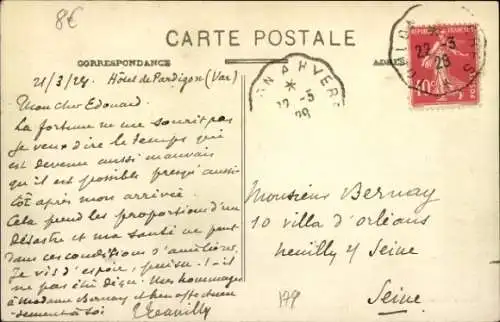 8€
CARTE POSTALE
CORRESPONDANCE
ADRES
22-3
28
RÉPUBLIQUE FRANÇAISE
POSTES
22-3
28
21/3/28 Hôtel de Pardigon (Var)
Mon cher Edouard.
La fortune ne me sourit pas
Je veux dire le temps qui
est devenu aussi mauvais
qu'il est possible presqu'aussi
tôt après mon arrivée.
Cela prend les proportions d'un
désastre et ma santé ne peut
dans ces conditions s'améliorer.
Je vis d'espoir, puisse-t-il
ne pas être déçu. Mes hommages
à Madame Bernay et bien affectueu
sement à toi.
Monsieur Bernay
10 villa d'orléans
Neuilly s/ Seine
Seine
178